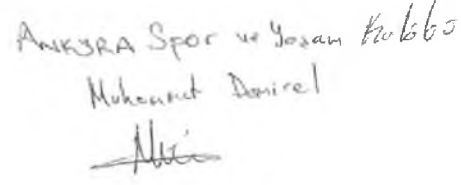 ANKYRA Spor ve Yaşam Kulübü
Muhammet Demirel